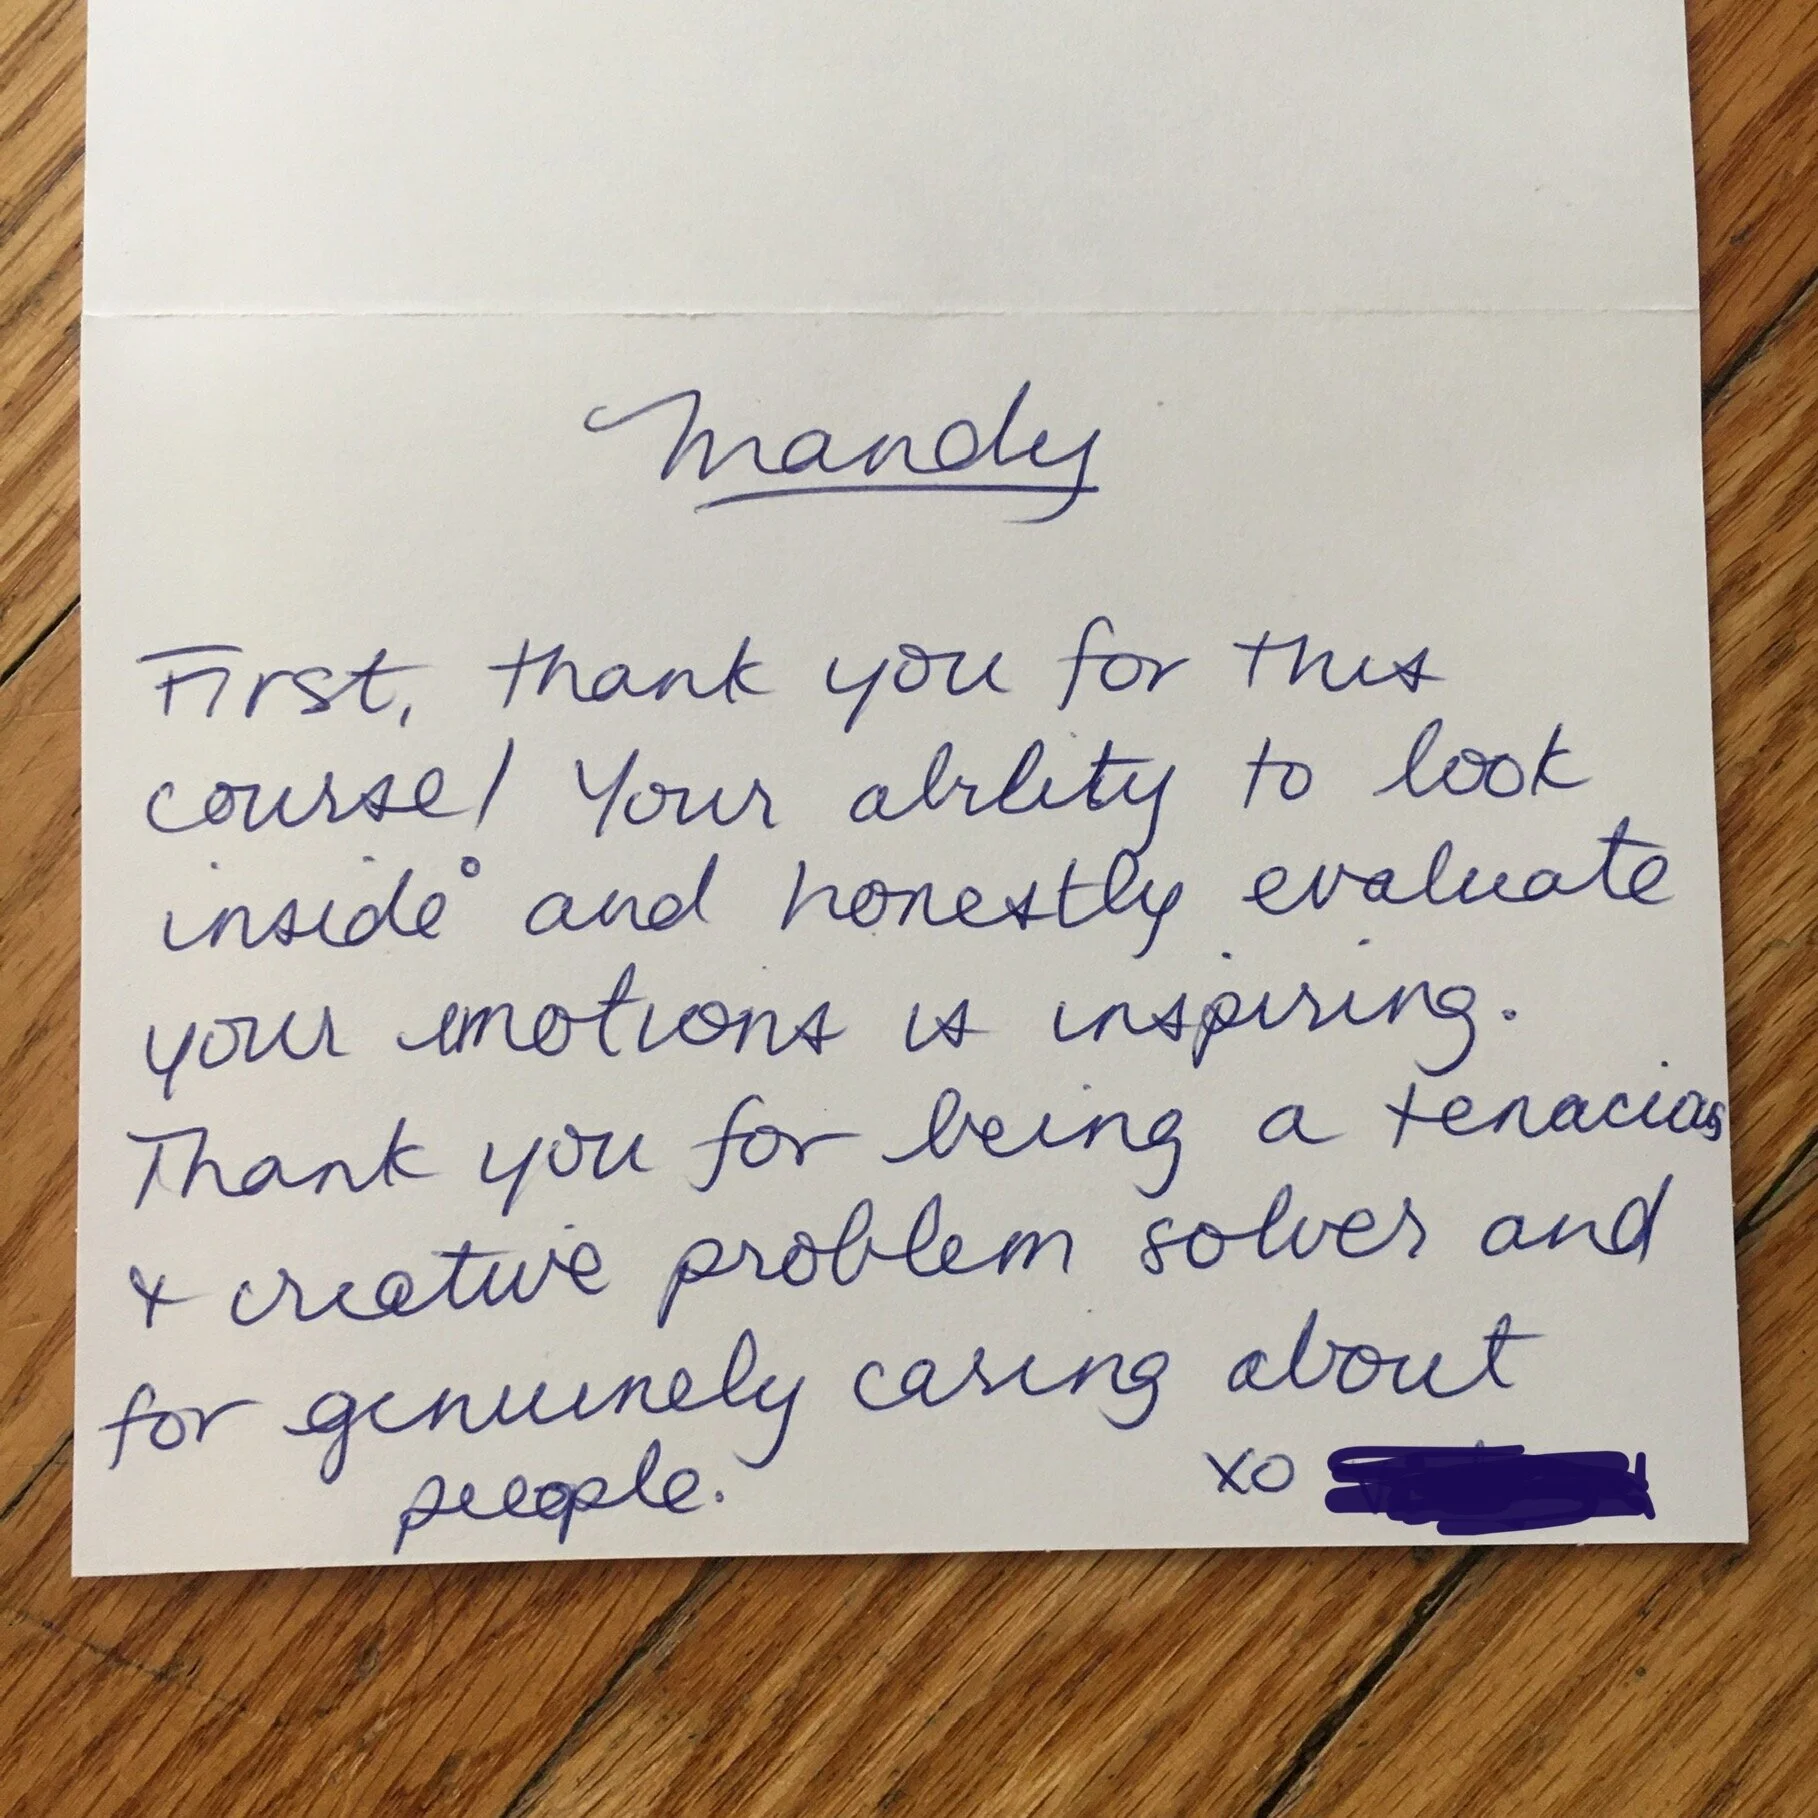 Mandy
First, thank you for this
course! Your ability to look
inside and honestly evaluate
your emotions is inspiring.
Thank you for being a tenacias
+ creative problem solver and
for genuinely caring about
people.
xo